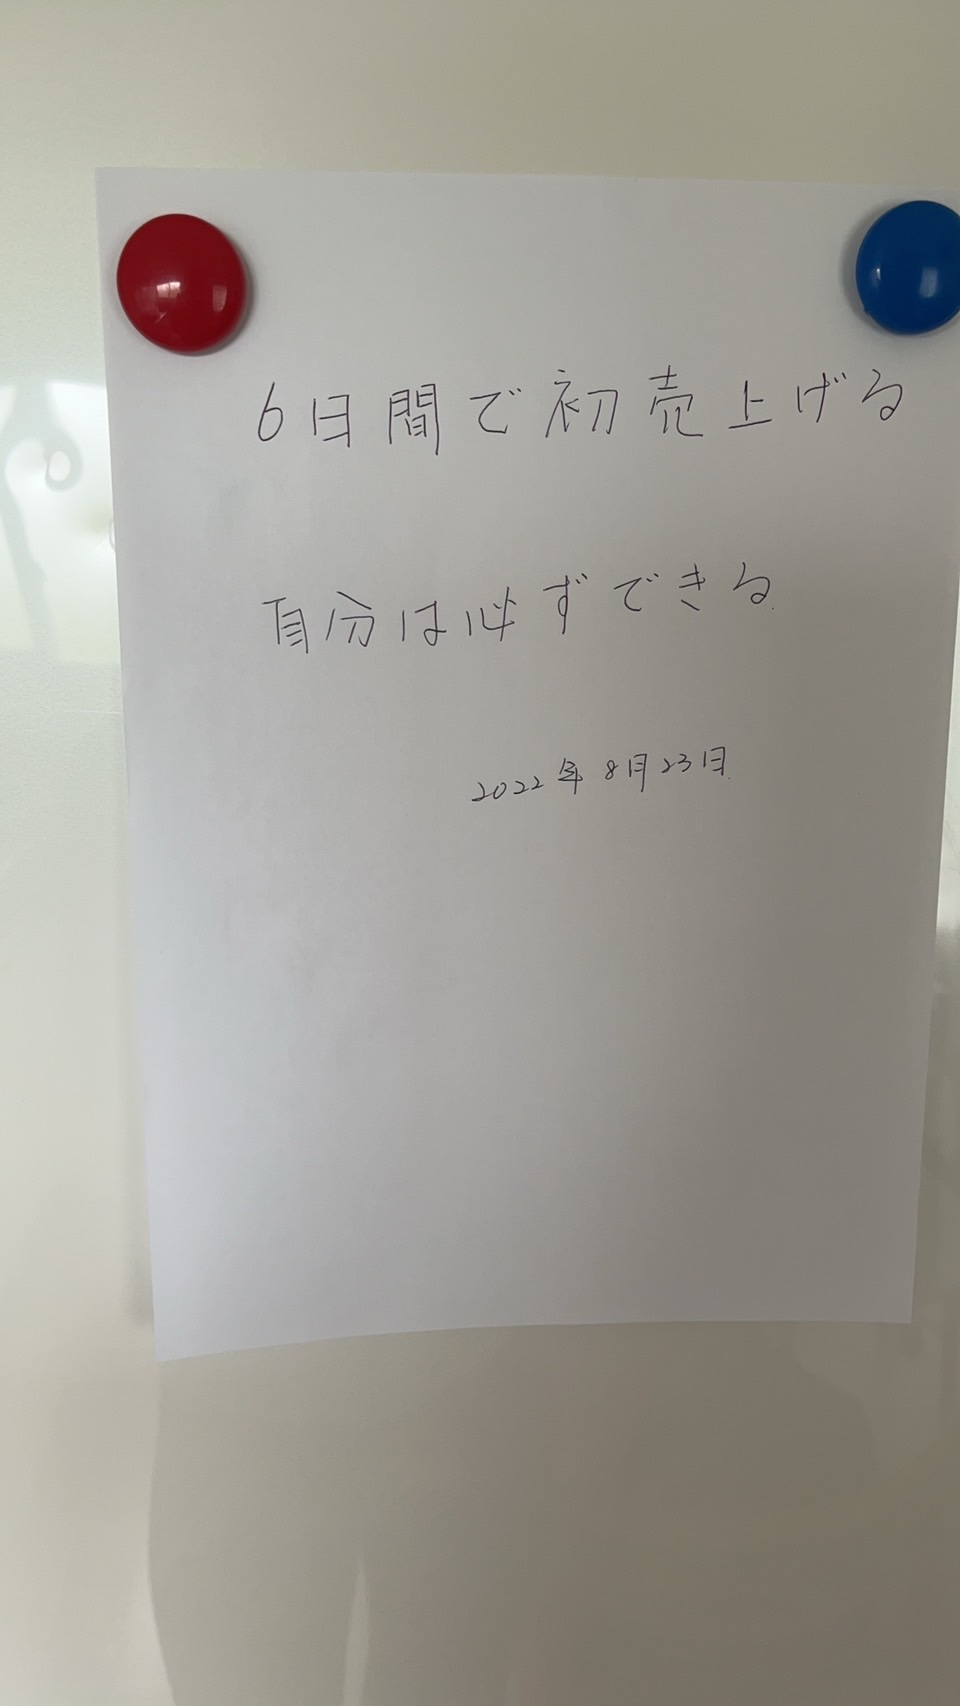 6日間で初売上げる
自分は必ずできる
2022年8月23日